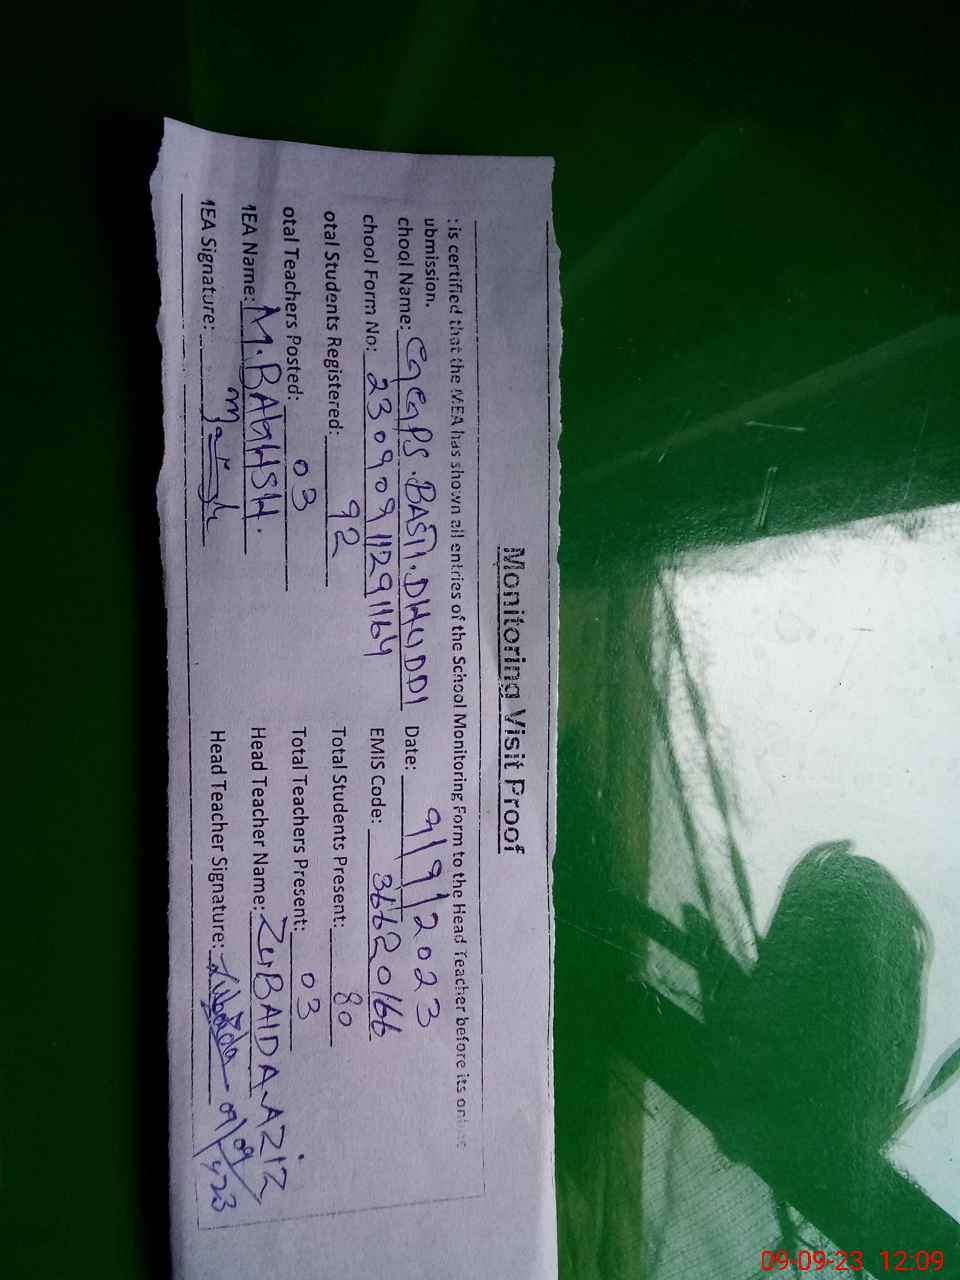 Monitoring Visit Proof
: is certified that the MEA has shown all entries of the School Monitoring Form to the Head Teacher before its online
ubmission.
chool Name: GGPS.BASTI.DHUDDI Date: 9/9/2023
chool Form No: 23090911291164 EMIS Code: 36620166
otal Students Registered: 92 Total Students Present: 80
otal Teachers Posted: 03 Total Teachers Present: 03
1EA Name: M.BAKHSH. Head Teacher Name: ZUBAIDA AZIZ
1EA Signature: Head Teacher Signature: Zubaida 09/09/23
09-09-23 12:09